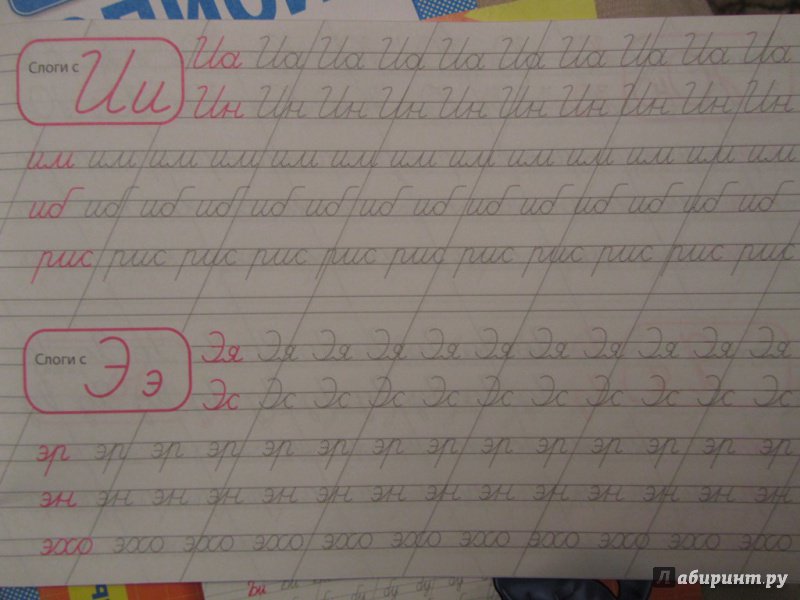 Слоги с Ии
Иа Иа Иа Иа Иа Иа Иа Иа Иа Иа
Ин Ин Ин Ин Ин Ин Ин Ин Ин Ин
им им им им им им им им им им им им им
иб иб иб иб иб иб иб иб иб иб иб иб иб иб
рис рис рис рис рис рис рис рис рис рис рис
Слоги с Ээ
Эя Эя Эя Эя Эя Эя Эя Эя Эя Эя Эя
Эс Эс Эс Эс Эс Эс Эс Эс Эс Эс Эс
эр эр эр эр эр эр эр эр эр эр эр эр эр эр
эн эн эн эн эн эн эн эн эн эн эн эн эн эн
эхо эхо эхо эхо эхо эхо эхо эхо эхо эхо эхо
Лабиринт.ру